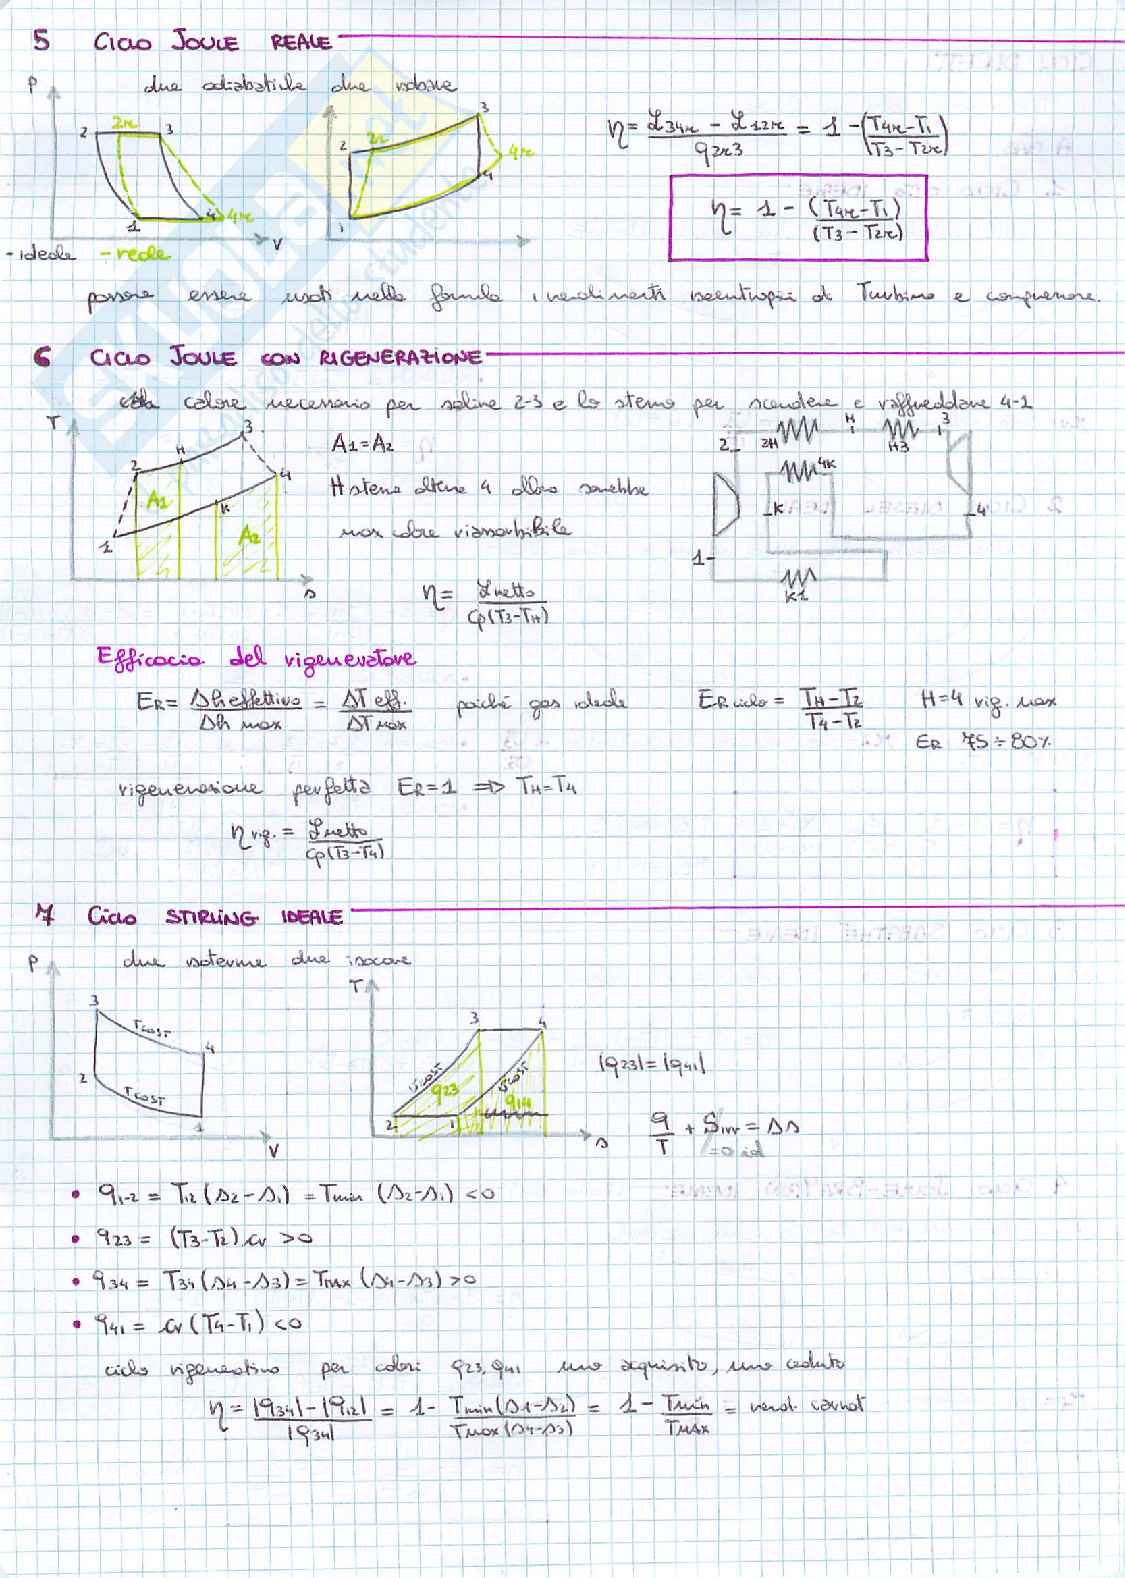 5 CICLO JOULE REALE
due adiabatiche due isobare
P
2 2r 3
1 4 4r
V
3
2 2r
4r
4
1
η = ℒ34r - ℒ12r / q2r3 = 1 - (T4r-T1 / T3-T2r)
η = 1 - (T4r-T1) / (T3-T2r)
-ideale -reale
possono essere usati nella formula i rendimenti isentropici di Turbina e compressore.
6 CICLO JOULE CON RIGENERAZIONE
calore necessario per salire 2-3 e lo stesso per scendere e raffreddare 4-1
T
3
H
2
4
K
1
A1
A2
s
A1=A2
H stesso 4 allora sarebbe
max calore riassorbibile
η = ℒnetto / cp(T3-TH)
2 2H H H3 3
4K
K
4
1
K1
Efficacia del rigeneratore
ER = Δh effettivo / Δh max = ΔT eff. / ΔT max poiché gas ideale
ER ciclo = TH-T2 / T4-T2
H=4 rig. max
ER 75÷80%
rigenerazione perfetta ER=1 => TH=T4
η rig. = ℒnetto / cp(T3-T4)
7 CICLO STIRLING IDEALE
due isoterme due isocore
P
3
TCOST
4
2
TCOST
1
V
T
3 4
vCOST
q23
vCOST
q14
2 1
s
|q23|=|q41|
q/T + Sirr = Δs
=0 id
• q1-2 = T12 (s2-s1) = Tmin (s2-s1) <0
• q23 = (T3-T2) cv >0
• q34 = T34 (s4-s3) = TMAX (s4-s3) >0
• q41 = cv (T4-T1) <0
ciclo rigenerativo per calori q23, q41 uno acquisito, uno ceduto
η = |q34|-|q12| / |q34| = 1 - Tmin(s1-s2) / Tmax(s4-s3) = 1 - Tmin / TMAX = rend. carnot